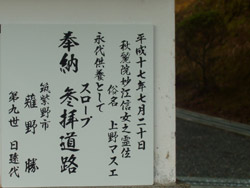 平成十七年七月二十日
秋黛院妙江信女之霊位
俗名 上野マスエ
永代供養として
スロープ
奉納 参拝道路
筑紫野市
薙野 勝
第九世 日達代